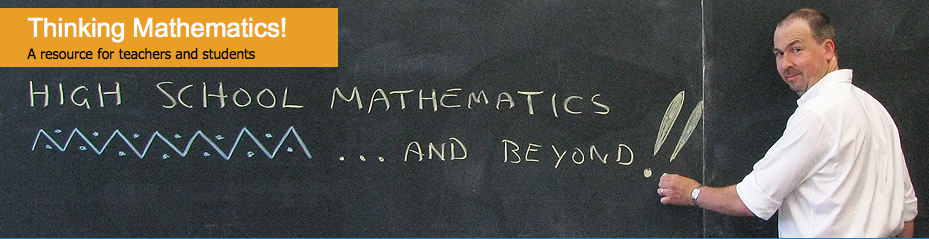 Thinking Mathematics!
A resource for teachers and students
HIGH SCHOOL MATHEMATICS
... AND BEYOND!!